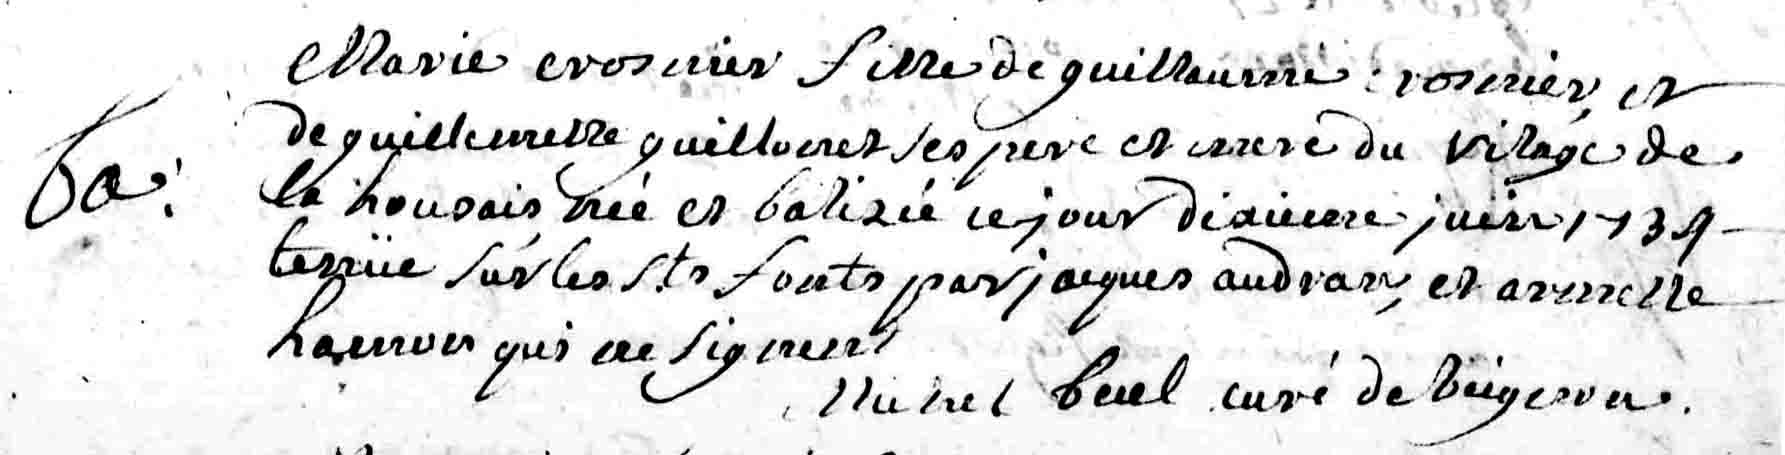 Marie crosnier fille de guillaume crosnier et
ba: de guillemette guillouet ses pere et mere du vilage de
la housais née et batizée ce jour dixieme juin 1739
tenüe sur les sts fonts par jacques audran, et armelle
hamon qui ne signent
Michel curé de